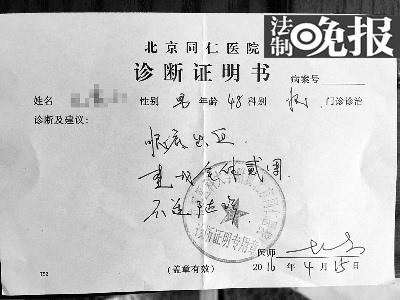 法制晚报
北京同仁医院
诊断证明书
病案号
姓名 性别 男 年龄 48 科别 门诊诊治
诊断及建议：
眼底出血
建议全休贰周
诊断证明专用章
医师
(盖章有效) 2016 年 4 月 15 日
752